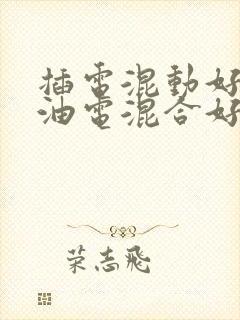 插電混動好
油電混合好
荣志飛